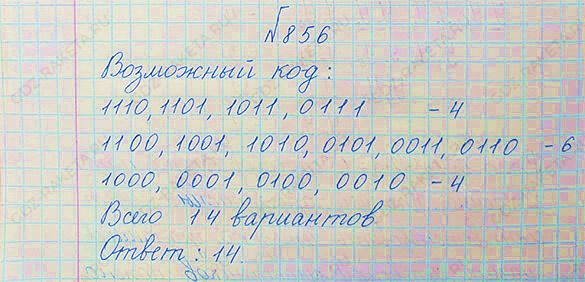 №856
Возможный код:
1110, 1101, 1011, 0111 - 4
1100, 1001, 1010, 0101, 0011, 0110 - 6
1000, 0001, 0100, 0010 - 4
Всего 14 вариантов
Ответ: 14.
GDZ-RAKETA.RU